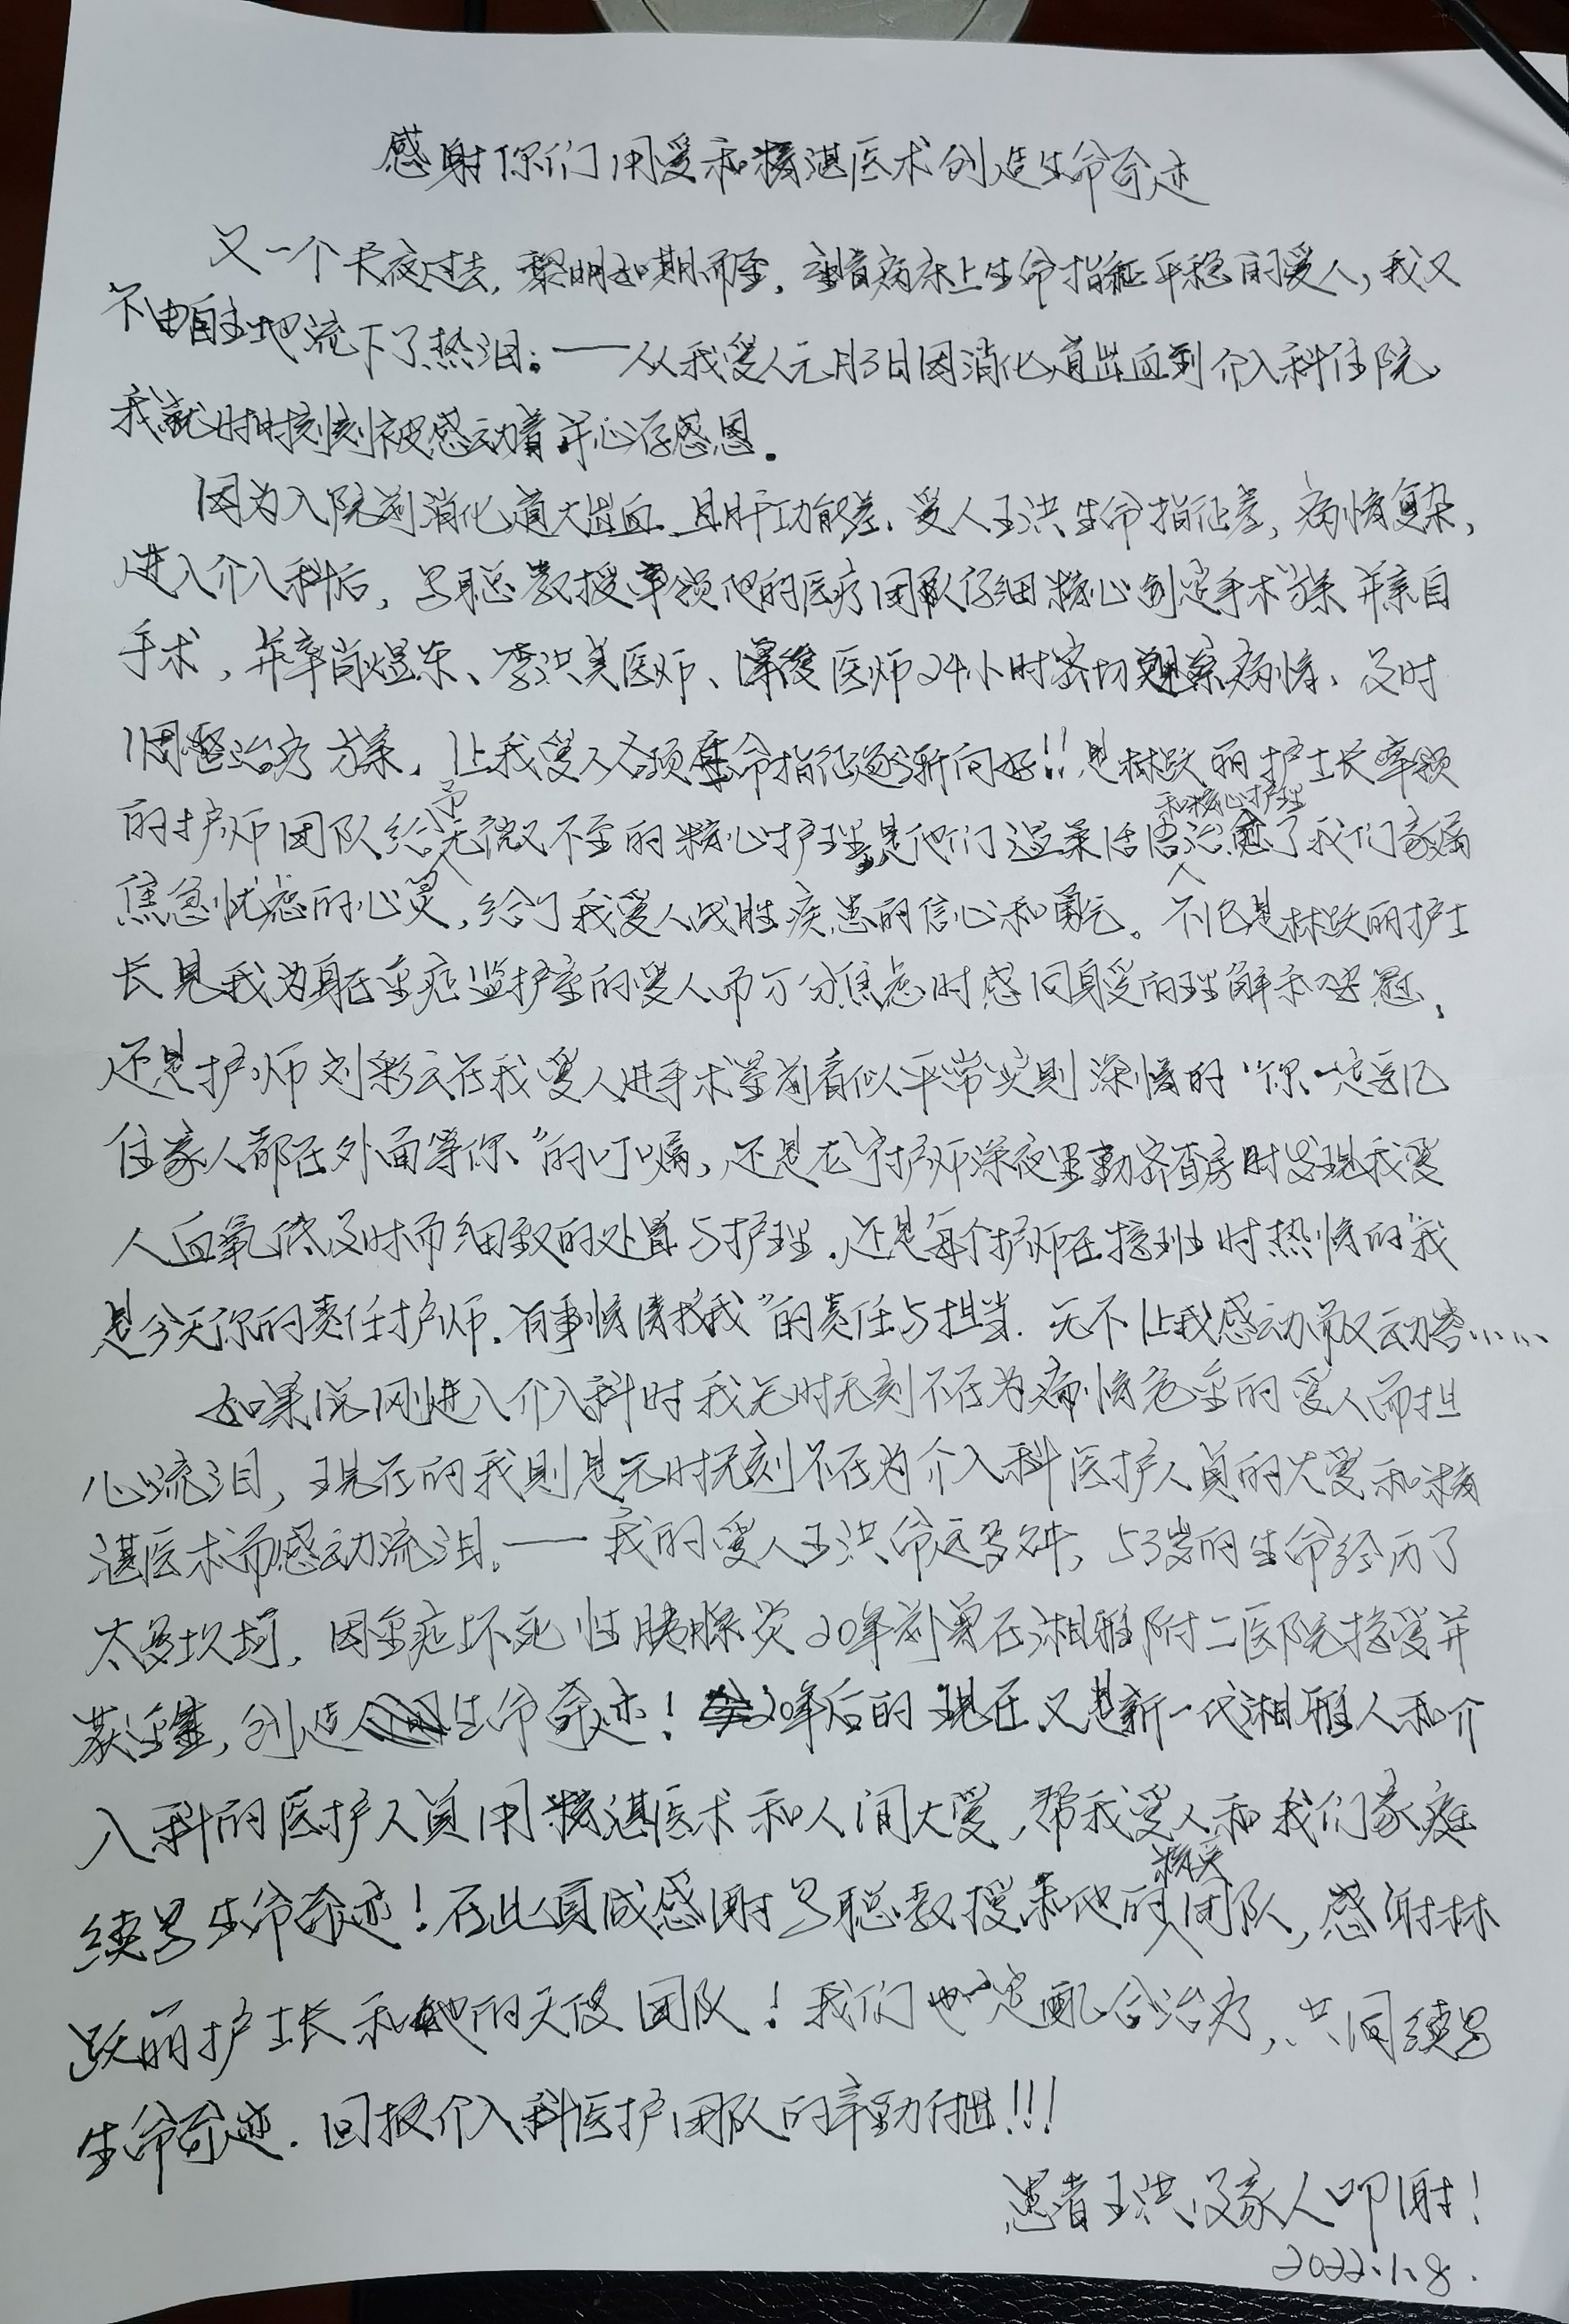 感谢你们用爱和精湛医术创造生命奇迹
又一个长夜过去，黎明如期而至，望着病床上生命指征平稳的爱人，我又
不由自主地流下了热泪。——从我爱人元月3日因消化道出血到介入科住院，
我就时时刻刻被感动着并心存感恩。
因为入院前消化道大出血，且肝功能差，爱人王洪生命指征差，病情复杂，
进入介入科后，马聪教授率领他的医疗团队仔细精心制定手术方案并亲自
手术，并率肖煜东、李洪美医师、谭俊医师24小时密切观察病情，及时
调整治疗方案，让我爱人各项生命指征逐渐向好!!是林跃丽护士长率领
的护师团队给予无微不至的精心护理，是他们温柔话语和精心护理治愈了我们家属
焦急忧虑的心灵，给了我爱人战胜疾患的信心和勇气。不但是林跃丽护士
长见我为身在重症监护室的爱人而万分焦虑时感同身受的理解和安慰，
还是护师刘彩云在我爱人进手术室前看似平常实则深情的“你一定记
住家人都在外面等你”的叮嘱，还是龙宇护师深夜里勤密查房时发现我爱
人血氧低及时而细致的处置与护理，还是每个护师在接班时热情的“我
是今天你的责任护师，有事情请找我”的责任与担当，无不让我感动又感动……
如果说刚进入介入科时我无时无刻不在为病情危重的爱人而担
心流泪，现在的我则是无时无刻不在为介入科医护人员的大爱和精
湛医术而感动流泪。——我的爱人王洪命运多舛，53岁的生命经历了
太多坎坷，因重症坏死性胰腺炎20年前曾在湘雅附二医院接受并
获治，创造生命奇迹！20年后的现在又是新一代湘雅人和介
入科的医护人员用精湛医术和人间大爱，帮我爱人和我们家庭
续写生命奇迹！在此真诚感谢马聪教授和他的精英团队，感谢林
跃丽护士长和她的天使团队！我们也一定配合治疗，共同续写
生命奇迹，回报介入科医护团队的辛勤付出!!!
患者王洪及家人叩谢！
2022.1.8.